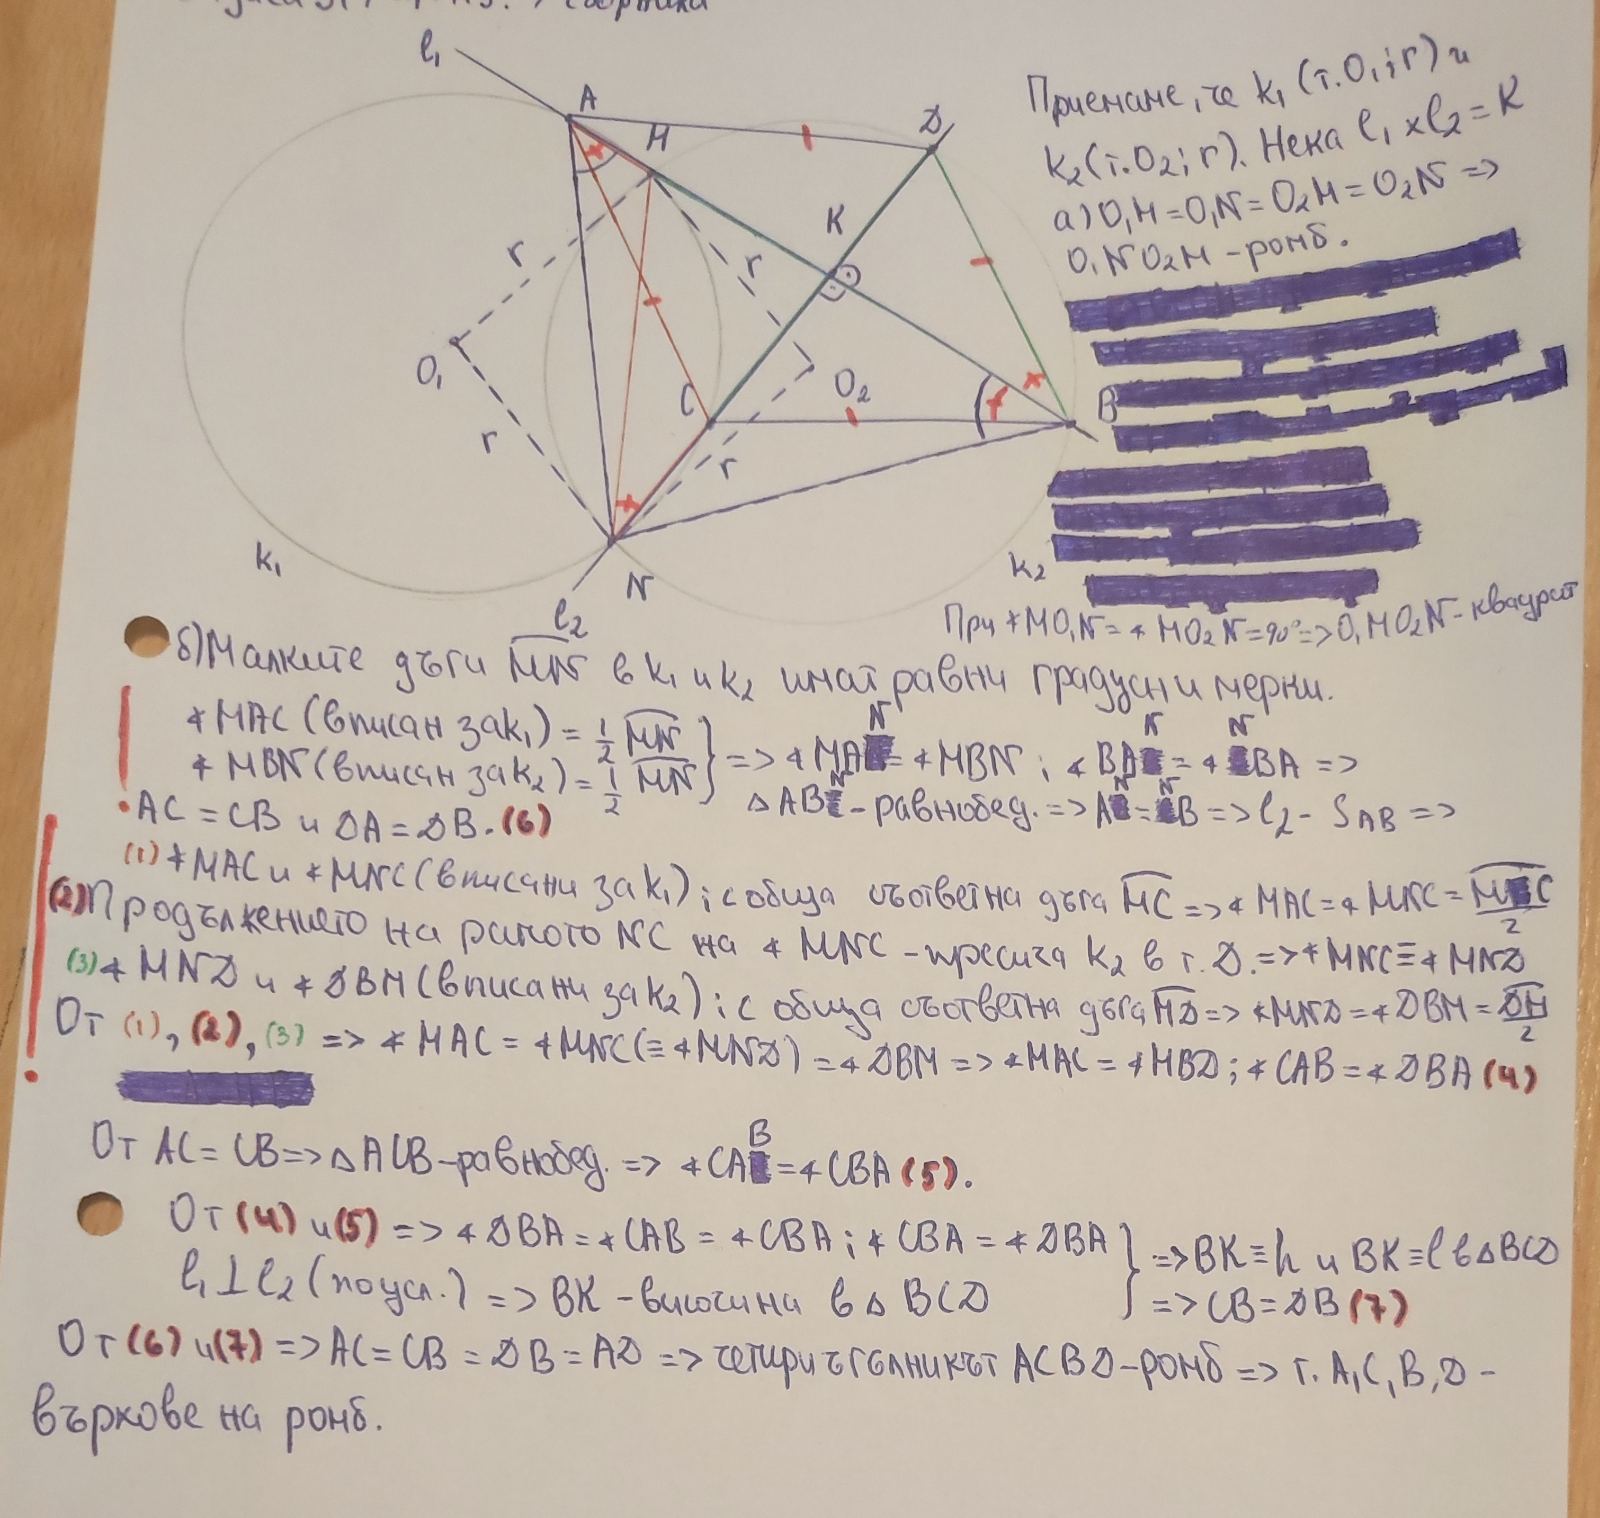 сборника
l₁
A
M
D
K
r
r
O₁
C
O₂
B
r
r
k₁
N
l₂
k₂
Приемаме, че k₁ (т.O₁; r) и
k₂ (т.O₂; r). Нека l₁ x l₂ = K
а) O₁M = O₁N = O₂M = O₂N =>
O₁NO₂M - ромб.
При ∢MO₁N = ∢MO₂N = 90° => O₁MO₂N - квадрат
б) Малките дъги MN в k₁ и k₂ имат равни градусни мерки.
∢MAC (вписан за k₁) = 1/2 MN
∢MBN (вписан за k₂) = 1/2 MN } => ∢MAN = ∢MBN ; ∢BAN = ∢NBA =>
△ABN - равнобед. => AN = NB => l₂ - SAB =>
AC = CB и DA = DB. (6)
(1) ∢MAC и ∢MNC (вписани за k₁) ; с обща съответна дъга MC => ∢MAC = ∢MNC = MC/2
(2) Продължението на рамото NC на ∢MNC - пресича k₂ в т. D. => ∢MNC ≡ ∢MND
(3) ∢MND и ∢DBM (вписани за k₂) ; с обща съответна дъга MD => ∢MND = ∢DBM = DM/2
От (1), (2), (3) => ∢MAC = ∢MNC (≡ ∢MND) = ∢DBM => ∢MAC = ∢MBD ; ∢CAB = ∢DBA (4)
От AC = CB => △ACB - равнобед. => ∢CAB = ∢CBA (5).
От (4) и (5) => ∢DBA = ∢CAB = ∢CBA ; ∢CBA = ∢DBA } => BK ≡ h и BK ≡ l в △BCD
l₁ ⊥ l₂ (по усл.) => BK - височина в △BCD } => CB = DB (7)
От (6) и (7) => AC = CB = DB = AD => четириъгълникът ACBD - ромб => т. A, C, B, D -
върхове на ромб.